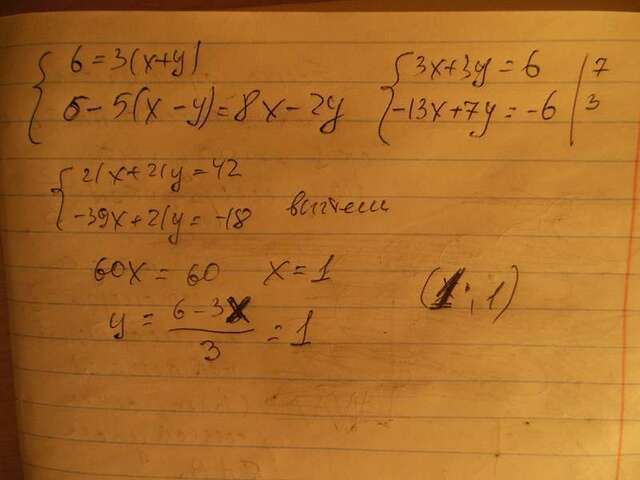 6 = 3(x+y)
6 - 5(x - y) = 8x - 2y
3x + 3y = 6 | 7
-13x + 7y = -6 | 3
21x + 21y = 42
-39x + 21y = -18 вычтем
60x = 60 x = 1
y = (6 - 3x)/3 = 1
(1; 1)